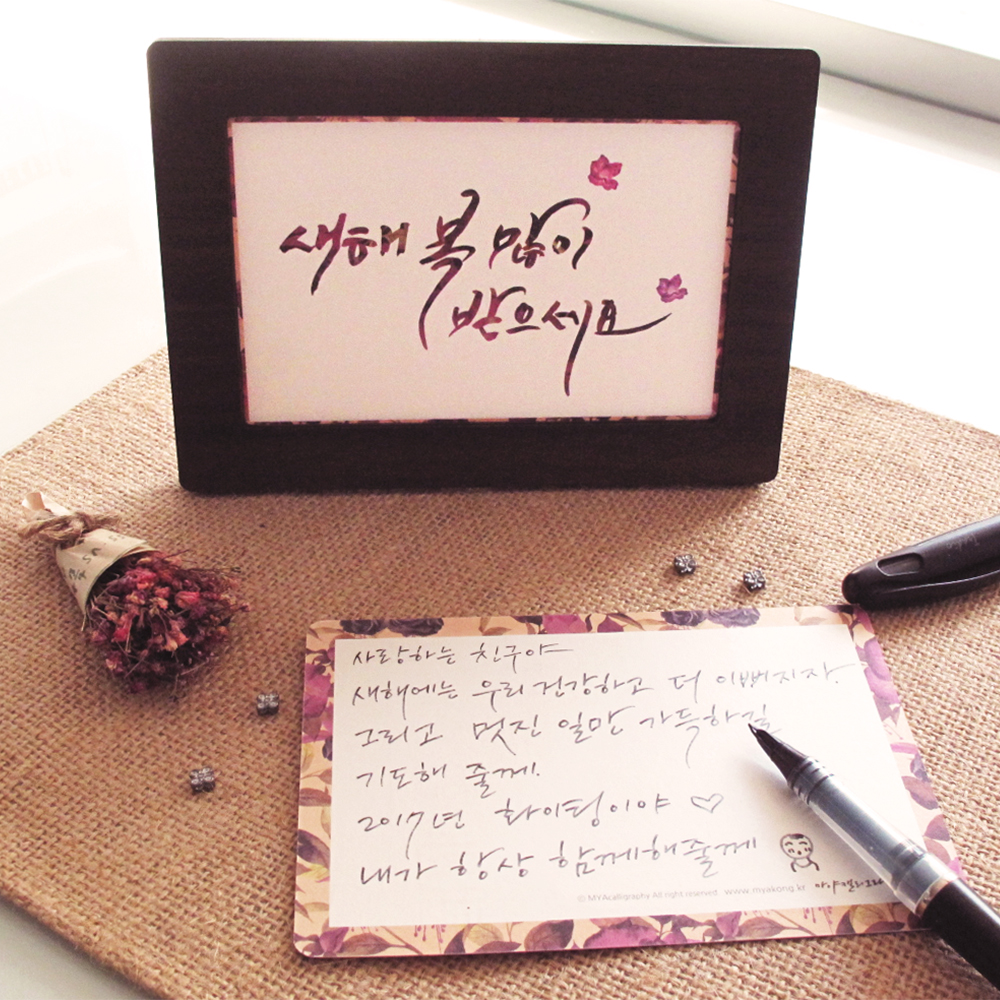 새해 복 많이
받으세요
사랑하는 친구야
새해에는 우리 건강하고 더 이뻐지자.
그리고 멋진 일만 가득하길
기도해 줄께.
2017년 화이팅이야 ♡
내가 항상 함께해줄께
ⓒ MYAcalligraphy All right reserved www.myakong.kr